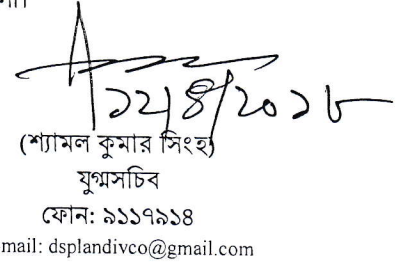 ১২/৪/২০১৮
(শ্যামল কুমার সিংহ)
যুগ্মসচিব
ফোন: ৯১১৭৯১৪
mail: dsplandivco@gmail.com